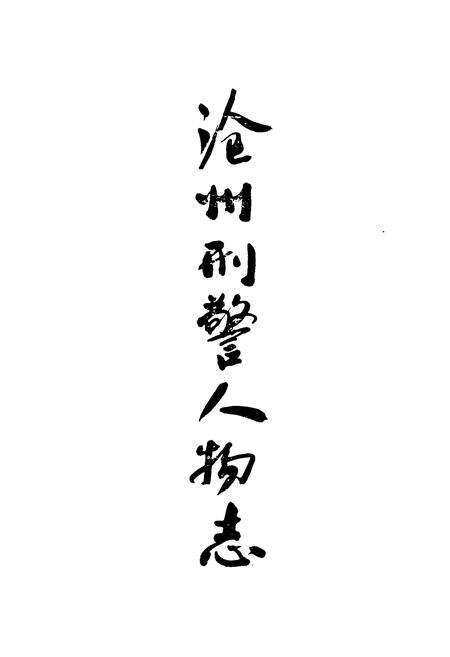 沧州刑警人物志